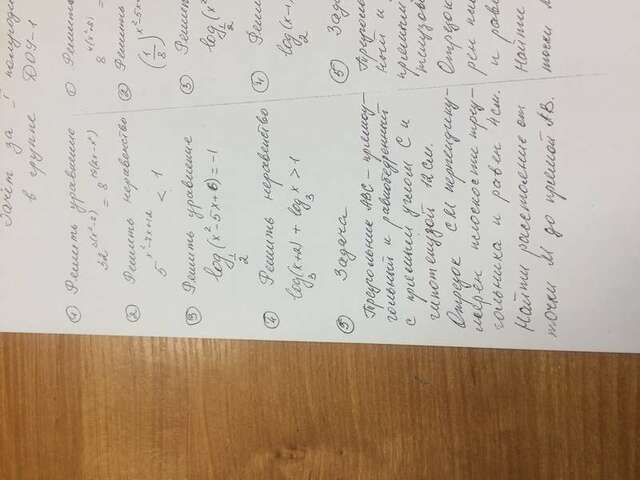 Зачёт за I полугоди
в группе ДОУ-1
① Решить уравнение
32^(3(x²-8)) = 8^(19(2x-x²))
② Решить неравенство
5^(x²-7x+12) < 1
③ Решить уравнение
log_(1/2)(x²-5x+6) = -1
④ Решить неравенство
log₃(x+2) + log₃x > 1
⑤ Задача
Треугольник ABC – прямоу-
гольный и равнобедренный
с прямым углом C и
гипотенузой 12 см.
Отрезок CM перпендику-
лярен плоскости треу-
гольника и равен 4 см.
Найти расстояние от
точки M до прямой AB.
① Решить
8^(4(x²+8)) =
② Решить
(1/8)^(x²-5x+
③ Реши
log_(1/2)(x²
④ Реши
log₂(x-1)
⑤ Зада
Треуголь
ный и
прямым
Отрезок
рен пло
и рав
Найти
точки M